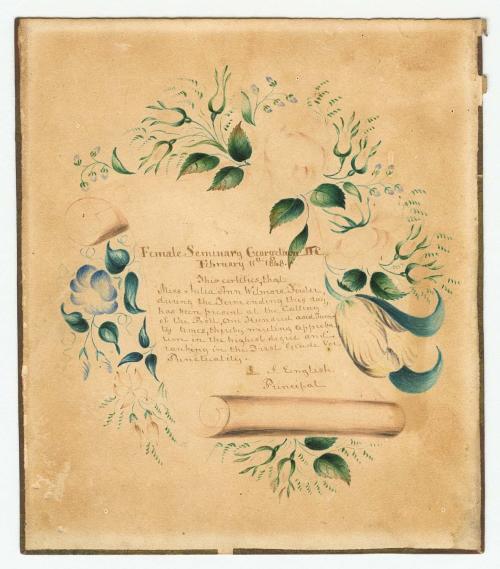 Female Seminary Georgetown
February 11th 1848.
This certifies, that
Miss Julia Ann Wilmore Fowler
during the Term ending this day,
has been present at the Calling
of the Roll, One Hundred and Twen-
ty times, thereby meriting approba-
tion in the highest degree and
ranking in the First Grade for
Punctuality.
S. English.
Principal